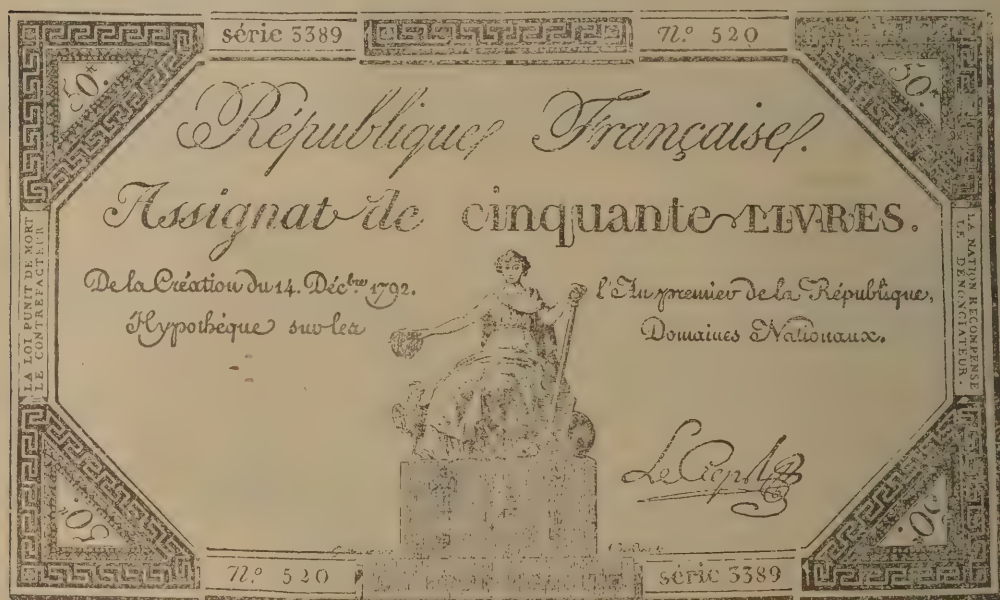 série 3389
n.º 520
50.ᵗ
50.ᵗ
République Française.
Assignat de cinquante LIVRES.
De la Création du 14. Déc.bre 1792.
l'An premier de la République,
Hypothéqué sur les
Domaines Nationaux.
LA LOI PUNIT DE MORT
LE CONTREFACTEUR
LA NATION RECOMPENSE
LE DÉNONCIATEUR.
50.ᵗ
50.
n.º 520
série 3389